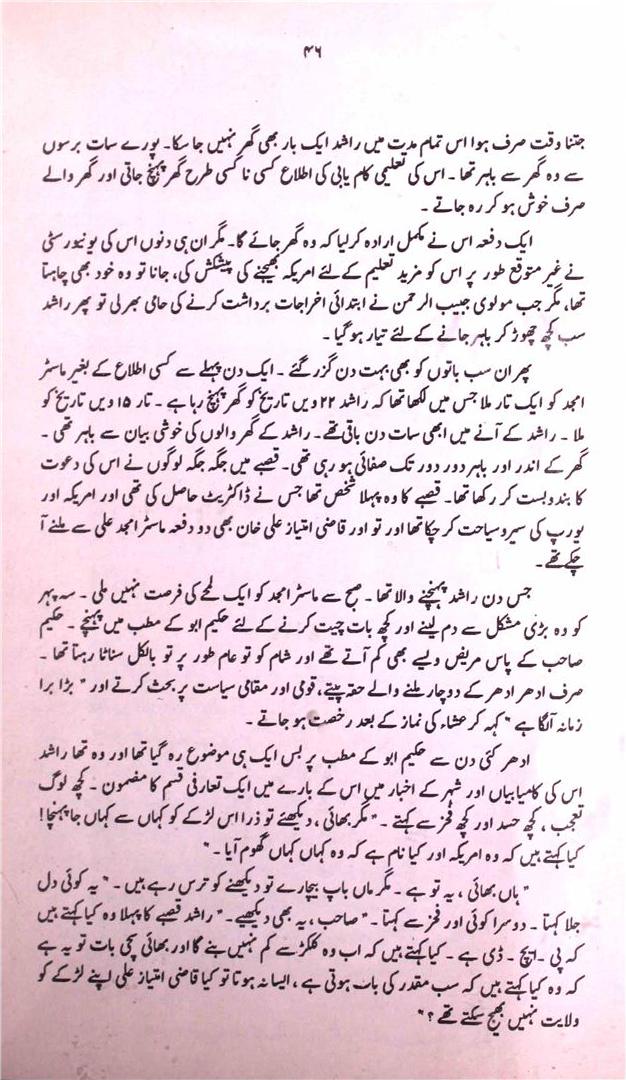 ۴۶
جتنا وقت صرف ہوا اس تمام مدیت میں راشد ایک بار بھی گھر نہیں جا سکا۔ پورے سات برسوں
سے وہ گھر سے باہر تھا ۔ اس کی تعلیمی کام یابی کی اطلاع کسی نا کسی طرح گھر پہنچ جاتی اور گھر والے
صرف خوش ہو کر رہ جاتے ۔
ایک دفعہ اس نے مکمل ارادہ کرلیا کہ وہ گھر جائے گا۔ مگر ان ہی دنوں اس کی یونیورسٹی
نے غیر متوقع طور پر اس کو مزید تعلیم کے لئے امریکہ بھیجنے کی پیشکش کی، جانا تو وہ خود بھی چاہتا
تھا، مگر جب مولوی جیب الرحمن نے ابتدائی اخراجات برداشت کرنے کی حامی بھر لی تو پھر راشد
سب کچھ چھوڑ کر باہر جانے کے لئے تیار ہو گیا ۔
پھر ان سب باتوں کو بھی بہت دن گزر گئے ۔ ایک دن پہلے سے کسی اطلاع کے بغیر ماسٹر
امجد کو ایک تار ملا جس میں لکھا تھا کہ راشد ۲۲ ویں تاریخ کو گھر پہنچ رہا ہے ۔ تار ۱۵ ویں تاریخ کو
ملا ۔ راشد کے آنے میں ابھی سات دن باقی تھے۔ راشد کے گھر والوں کی خوشی بیان سے باہر تھی ۔
گھر کے اندر اور باہر دور دور تک صفائی ہو رہی تھی۔ قصبے میں جگہ جگہ لوگوں نے اس کی دعوت
کا بندوبست کر رکھا تھا۔ قصبے کا وہ پہلا شخص تھا جس نے ڈاکٹریٹ حاصل کی تھی اور امریکہ اور
یورپ کی سیر و سیاحت کر چکا تھا اور تو اور قاضی امتیاز علی خان بھی دو دفعہ ماسٹر امجد علی سے ملنے آ
چکے تھے۔
جس دن راشد پہنچنے والا تھا ۔ صبح سے ماسٹر امجد کو ایک لمحے کی فرصت نہیں ملی ۔ سہ پہر
کو وہ بڑی مشکل سے دم لینے اور کچھ بات چیت کرنے کے لئے حکیم ابو کے مطب میں پہنچے ۔ حکیم
صاحب کے پاس مریض ویسے بھی کم آتے تھے اور شام کو تو عام طور پر تو بالکل سناٹا رہتا تھا ۔
صرف ادھر ادھر کے دو چار ملنے والے حقہ پیتے، قومی اور مقامی سیاست پر بحث کرتے اور " بڑا برا
زمانہ آلگا ہے " کہہ کر عشاء کی نماز کے بعد رخصت ہو جاتے ۔
ادھر کئی دن سے حکیم ابو کے مطب پر بس ایک ہی موضوع رہ گیا تھا اور وہ تھا راشد
اس کی کامیابیاں اور شہر کے اخبار میں اس کے بارے میں ایک تعارفی قسم کا مضمون ۔ کچھ لوگ
تعجب ، کچھ حسد اور کچھ فخر سے کہتے ۔ " مگر بھائی ، دیکھئے تو ذرا اس لڑکے کو کہاں سے کہاں جا پہنچا!
کیا کہتے ہیں کہ وہ امریکہ اور کیا نام ہے کہ وہ کہاں کہاں گھوم آیا ۔ "
" ہاں بھائی ، یہ تو ہے ۔ مگر ماں باپ بیچارے تو دیکھنے کو ترس رہے ہیں ۔ " یہ کوئی دل
جلا کہتا ۔ دوسرا کوئی اور فخر سے کہتا ۔ " صاحب ، یہ بھی دیکھیے ۔ " راشد قصبے کا پہلا وہ کیا کہتے ہیں
کہ پی ۔ ایچ ۔ ڈی ہے ۔ کیا کہتے ہیں کہ اب وہ کلکڑ سے کم نہیں بنے گا اور بھائی سچی بات تو یہ ہے
کہ وہ کیا کہتے ہیں کہ سب مقدر کی بات ہوتی ہے ، ایسا نہ ہوتا تو کیا قاضی امتیاز علی اپنے لڑکے کو
ولایت نہیں بھیج سکتے تھے ؟ "